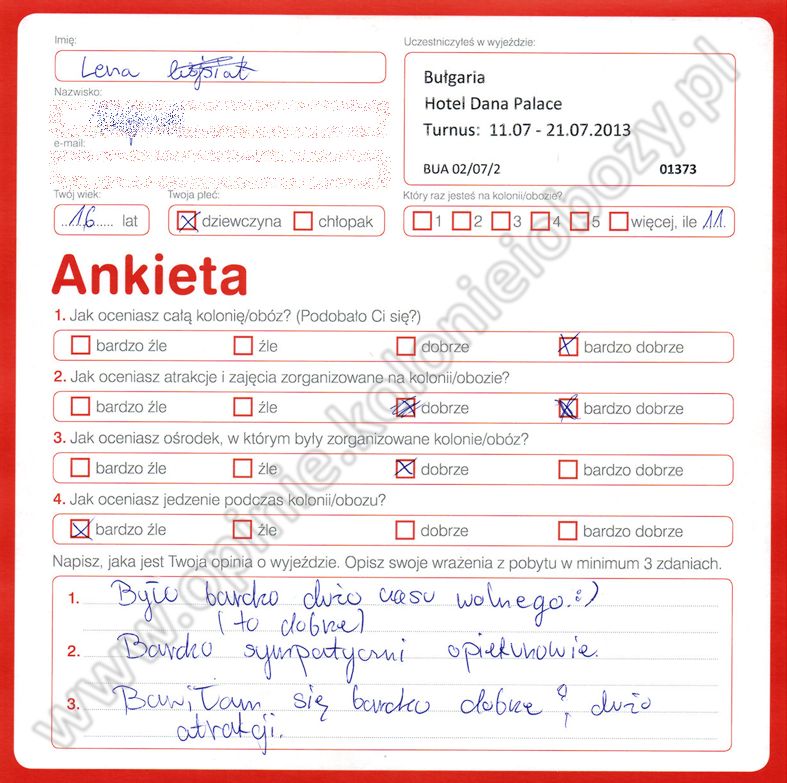 Imię:
Uczestniczyłeś w wyjeździe:
Lena
Bułgaria
Nazwisko:
Hotel Dana Palace
Turnus: 11.07 - 21.07.2013
e-mail:
BUA 02/07/2 01373
Twój wiek: Twoja płeć: Który raz jesteś na kolonii/obozie?
16 lat dziewczyna chłopak 1 2 3 4 5 więcej, ile 11.
Ankieta
1. Jak oceniasz całą kolonię/obóz? (Podobało Ci się?)
bardzo źle źle dobrze bardzo dobrze
2. Jak oceniasz atrakcje i zajęcia zorganizowane na kolonii/obozie?
bardzo źle źle dobrze bardzo dobrze
3. Jak oceniasz ośrodek, w którym były zorganizowane kolonie/obóz?
bardzo źle źle dobrze bardzo dobrze
4. Jak oceniasz jedzenie podczas kolonii/obozu?
bardzo źle źle dobrze bardzo dobrze
Napisz, jaka jest Twoja opinia o wyjeździe. Opisz swoje wrażenia z pobytu w minimum 3 zdaniach.
1. Było bardzo dużo czasu wolnego. :)
(to dobrze)
2. Bardzo sympatyczni opiekunowie.
3. Bawiłam się bardzo dobrze, dużo
atrakcji.
www.opinie.kolonieiobozy.pl